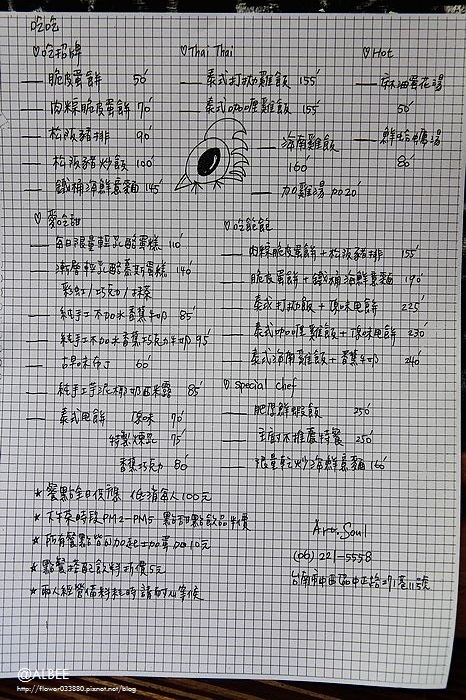 吃吃
♡吃招牌
脆皮蛋餅 50
肉粽脆皮蛋餅 70
松阪豬排 90
松阪豬炒飯 100
鐵桶海鮮意麵 145
♡Thai Thai
泰式打拋雞飯 155
泰式咖哩雞飯 155
海南雞飯
160
加雞湯 po20
♡Hot
麻油蛋花湯
50
鮮蛤蠣湯
80
♡愛吃甜
每日限量輕乳酪蛋糕 110
漸層輕乳酪慕斯蛋糕 140
彩虹/巧克力/抹茶
純手工不加水香蕉牛奶 85
純手工不加水香蕉巧克力牛奶 95
古早味布丁 60
純手工芋泥椰奶西米露 85
泰式甩餅 原味 70
特製煉乳 75
香蕉巧克力 80
♡吃飽飽
肉粽脆皮蛋餅+松阪豬排 155
脆皮蛋餅+鐵桶海鮮意麵 190
泰式打拋飯+原味甩餅 225
泰式咖哩雞飯+原味甩餅 230
泰式海南雞飯+香蕉牛奶 240
♡special chef
肥原鮮蝦飯 250
主廚不推薦特餐 250
限量乾炒海鮮意麵 160
★餐點全日供應 低消每人100元
★下午茶時段PM2-PM5 點甜點飲品半價
★所有餐點皆可加起士加蛋 po10元
★點餐搭配飲料折價5元
★兩人經營備料耗時 請耐心等候
Aro.Soul
(06) 221-5558
台南市中西區中正路
@ALBEE
http://flower033880.pixnet.net/blog